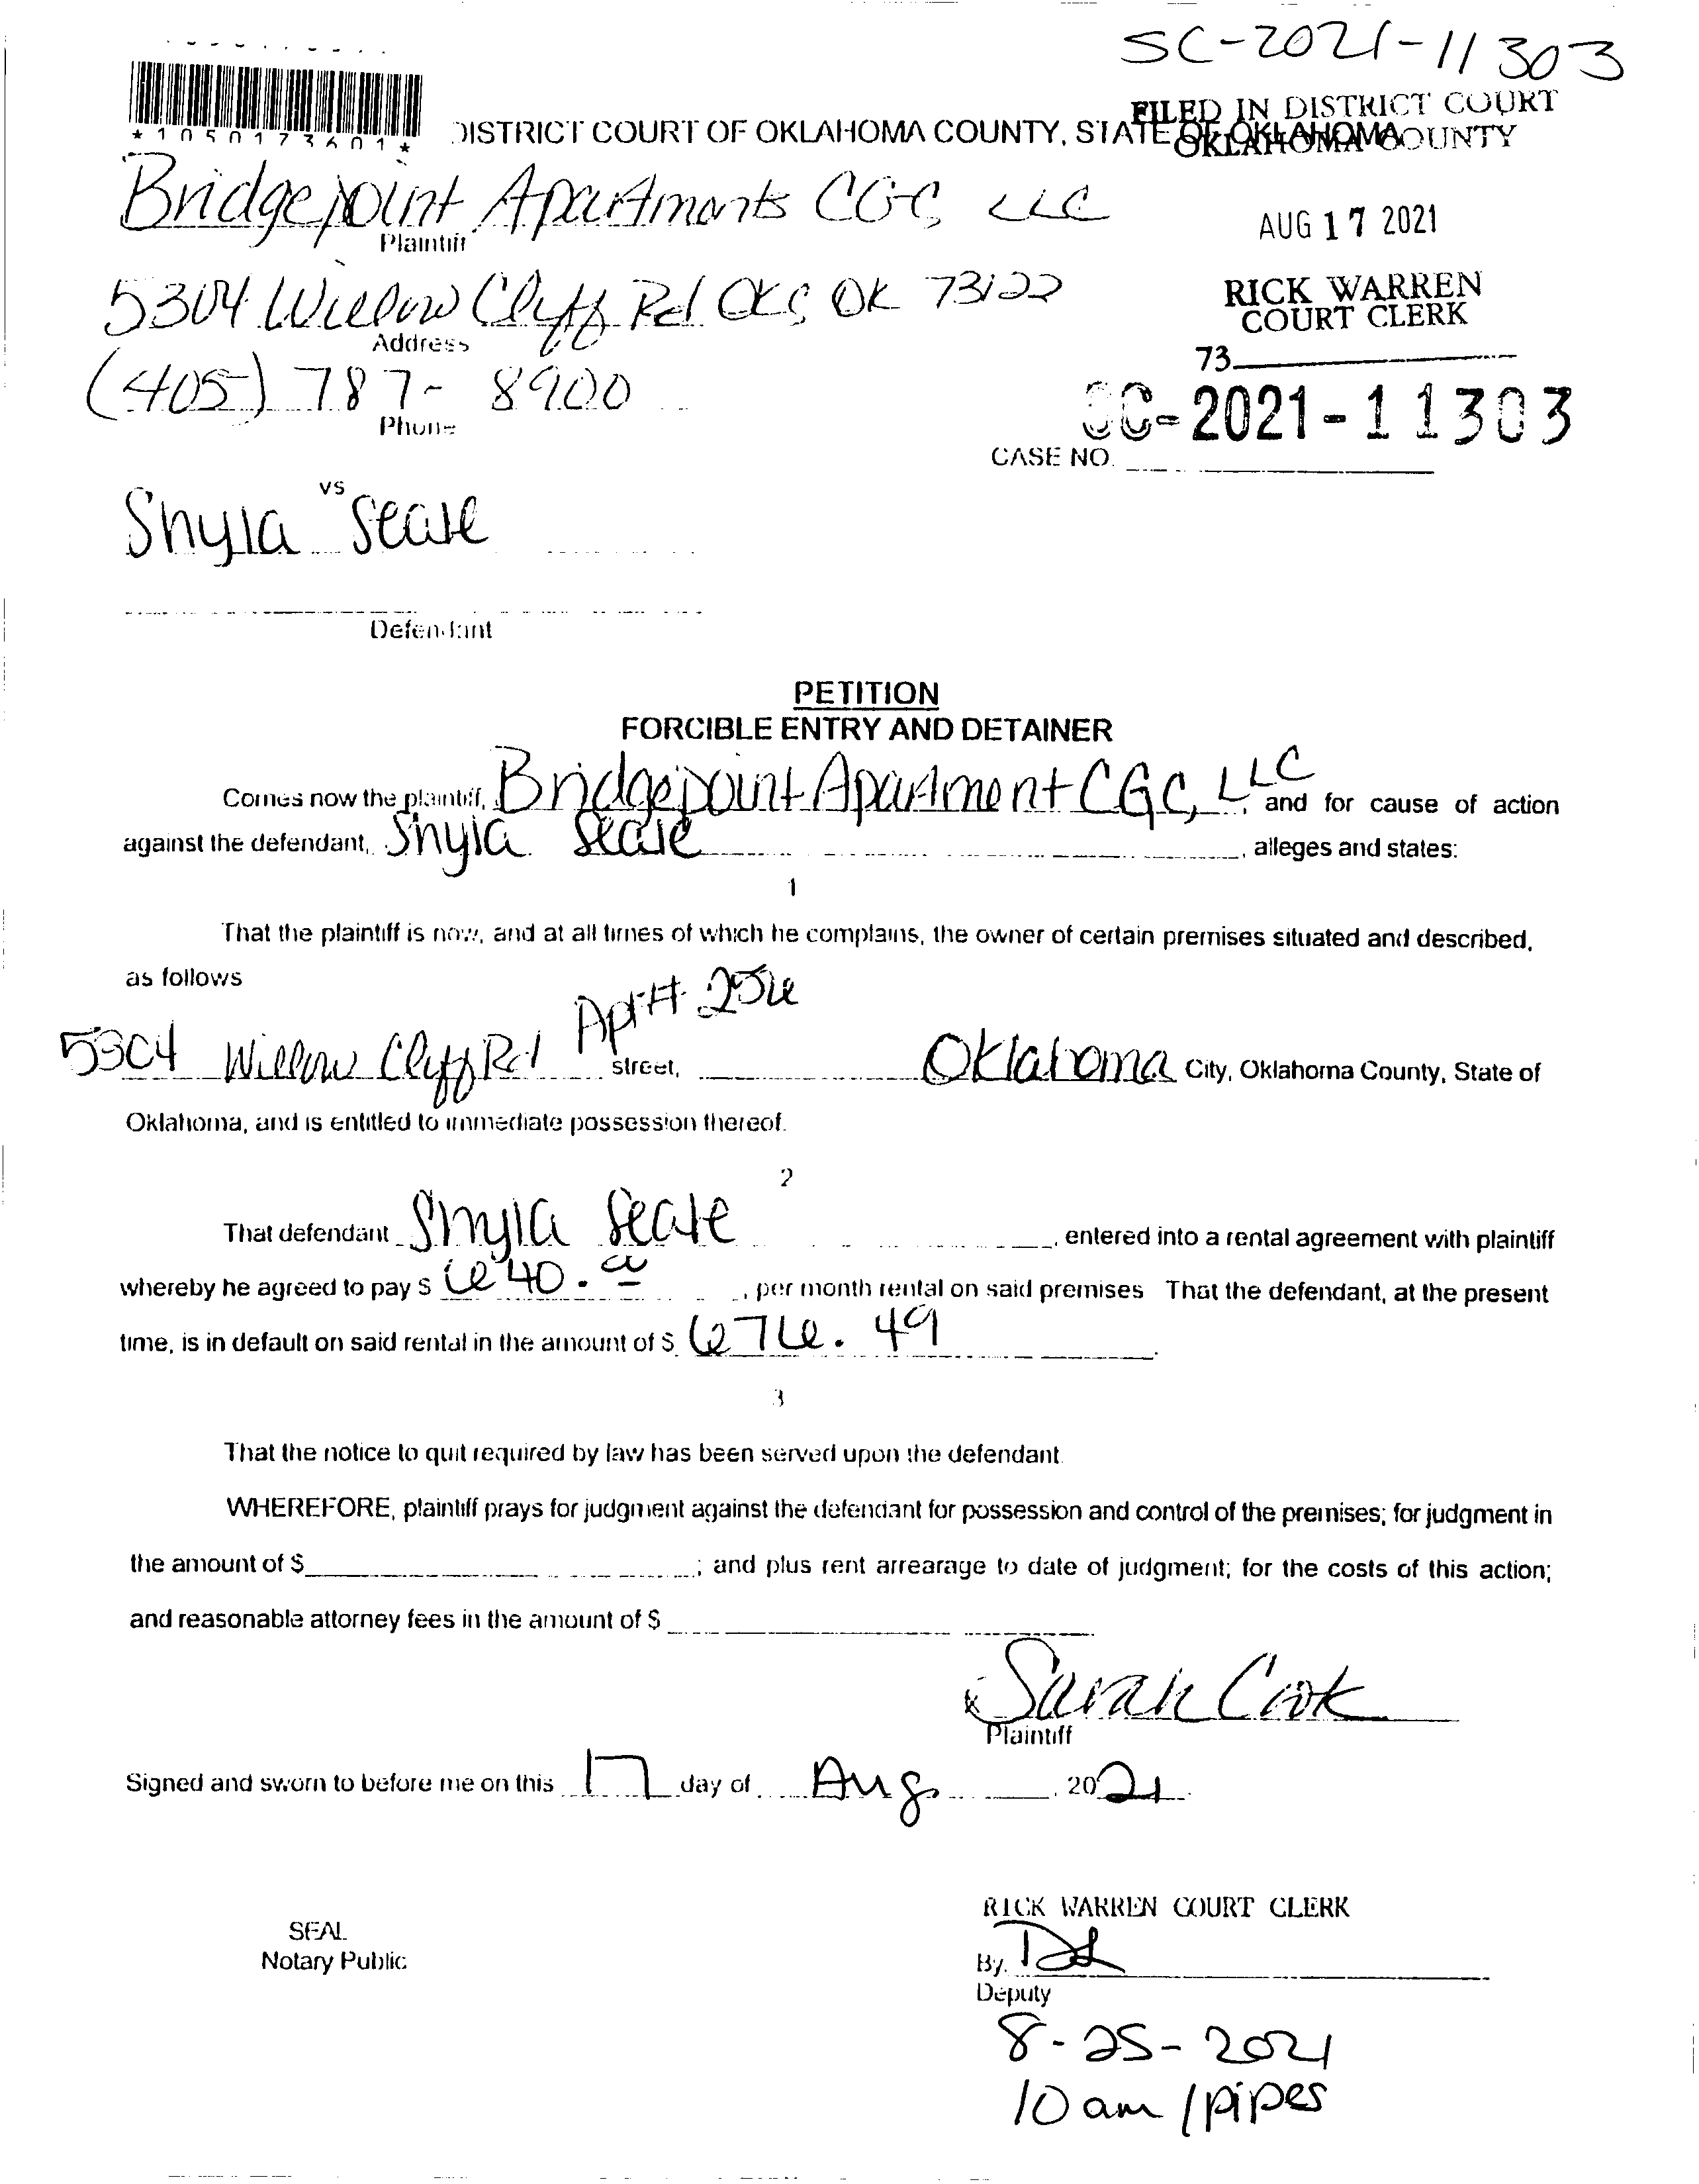 SC-2021-11303
FILED IN DISTRICT COURT
OKLAHOMA COUNTY
*1050173601*
DISTRICT COURT OF OKLAHOMA COUNTY, STATE OF OKLAHOMA
Bridgepoint Apartments CGC, LLC
Plaintiff
AUG 17 2021
5304 Willow Cliff Rd OKC, OK 73122
Address
RICK WARREN
COURT CLERK
73
(405) 787-8900
Phone
SC-2021-11303
CASE NO.
vs
Shyla Seale
Defendant
PETITION
FORCIBLE ENTRY AND DETAINER
Comes now the plaintiff, Bridgepoint Apartment CGC, LLC, and for cause of action
against the defendant, Shyla Seale, alleges and states:
1
That the plaintiff is now, and at all times of which he complains, the owner of certain premises situated and described,
as follows
5304 Willow Cliff Rd Apt# 256 street, Oklahoma City, Oklahoma County, State of
Oklahoma, and is entitled to immediate possession thereof.
2
That defendant Shyla Seale, entered into a rental agreement with plaintiff
whereby he agreed to pay $ 640.00, per month rental on said premises That the defendant, at the present
time, is in default on said rental in the amount of $ 676.49.
3
That the notice to quit required by law has been served upon the defendant.
WHEREFORE, plaintiff prays for judgment against the defendant for possession and control of the premises; for judgment in
the amount of $; and plus rent arrearage to date of judgment; for the costs of this action;
and reasonable attorney fees in the amount of $
x Sarah Cook
Plaintiff
Signed and sworn to before me on this 17 day of Aug, 2021.
RICK WARREN COURT CLERK
SEAL
Notary Public
By
Deputy
8-25-2021
10 am / pipes